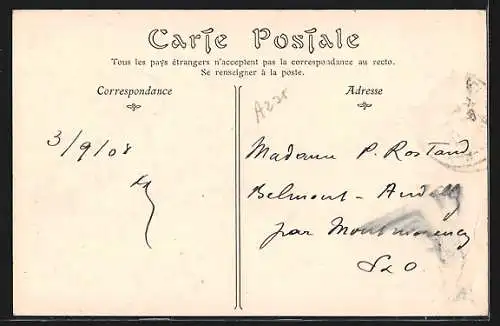 Carte Postale
Tous les pays étrangers n'acceptent pas la correspondance au recto.
Se renseigner à la poste.
Correspondance
Adresse
A225
3/9/08
Madame P. Rostand
Belmont - Andilly
par Montmorency
S & O.